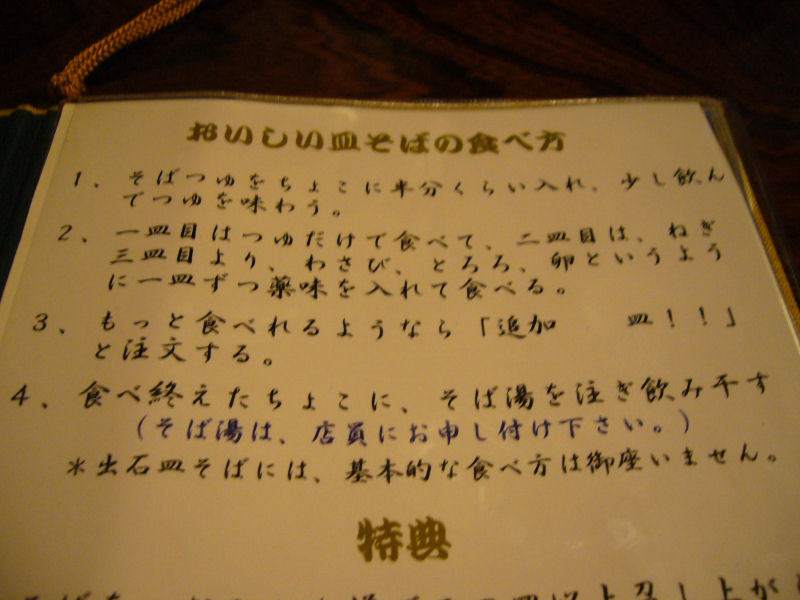 おいしい皿そばの食べ方
1、そばつゆをちょこに半分くらい入れ、少し飲ん
でつゆを味わう。
2、一皿目はつゆだけで食べて、二皿目は、ねぎ
三皿目より、わさび、とろろ、卵というよう
に一皿ずつ薬味を入れて食べる。
3、もっと食べれるようなら「追加　　皿！！」
と注文する。
4、食べ終えたちょこに、そば湯を注ぎ飲み干す
（そば湯は、店員にお申し付け下さい。）
＊出石皿そばには、基本的な食べ方は御座いません。
特典